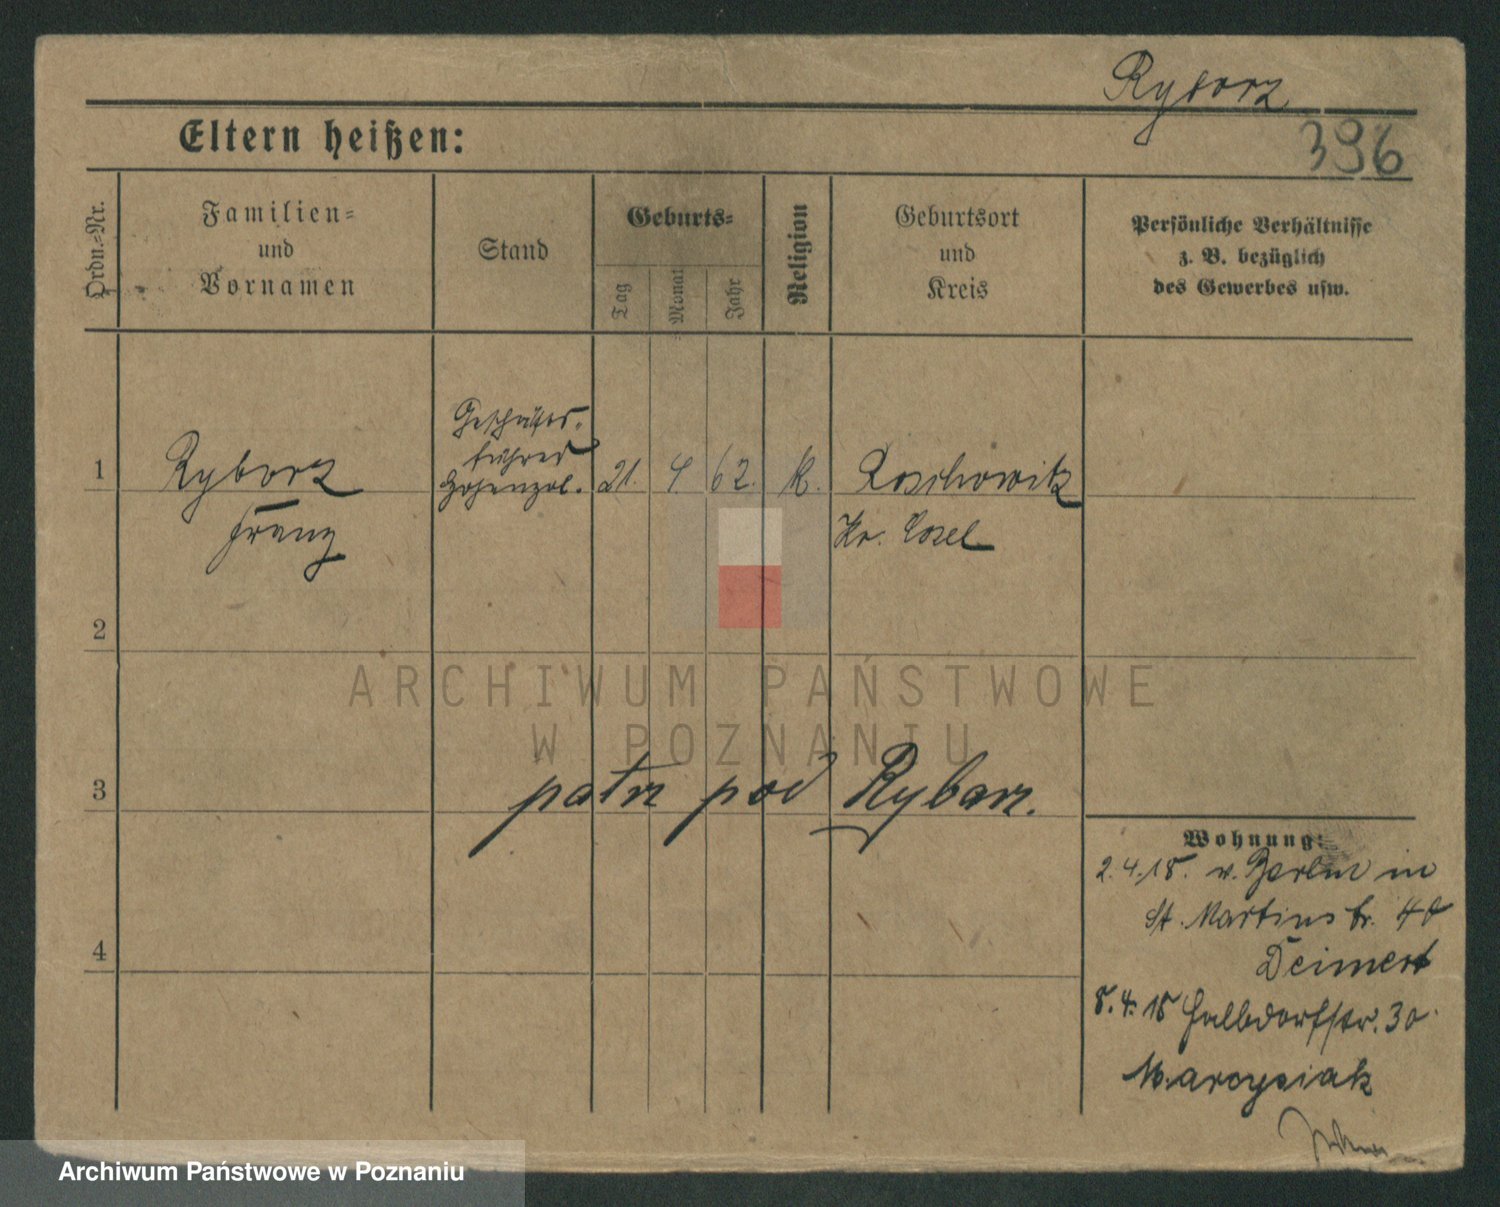 Ryborz
396
Eltern heißen:
Ordn.-Nr.
Familien-
und
Vornamen
Stand
Geburts-
Tag
Monat
Jahr
Religion
Geburtsort
und
Kreis
Persönliche Verhältnisse
z. B. bezüglich
des Gewerbes usw.
Geschäfts-
führer
Hohenzol.
1 Ryborz 21. 4. 62. K. Roschowitz
Franz Kr. Cosel
2
ARCHIWUM PAŃSTWOWE
W POZNANIU
3 patrz pod Rybarz.
Wohnung:
2.4.18. v. Berlin in
St. Martinstr. 40
Deimert
4
8.4.18 Halbdorfstr. 30
Marcysiak
Archiwum Państwowe w Poznaniu